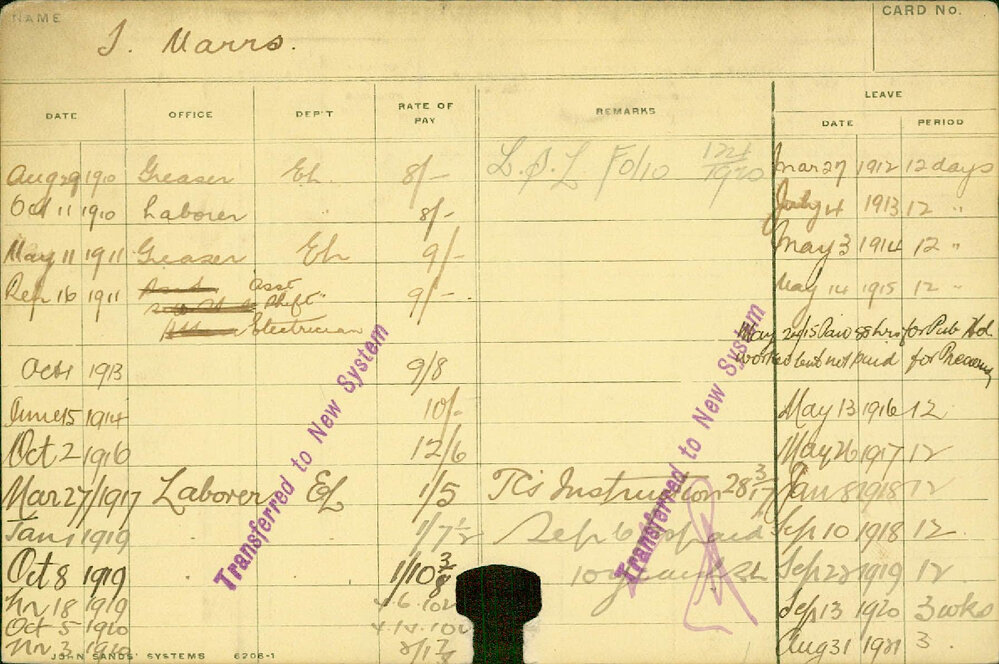 NAME
J. Marrs.
CARD No.
DATE OFFICE DEP'T RATE OF PAY REMARKS LEAVE
DATE PERIOD
Aug 29 1910 Greaser El. 8/- L.S.L. F0/10 124/1920 Mar 27 1912 12 days
Oct 11 1910 Laborer 8/- July 4 1913 12 "
May 11 1911 Greaser El 9/- May 3 1914 12 "
Sep 16 1911 Asst 9/- May 14 1915 12 "
Shift
Electrician
May 24 15 Paid 8 hrs for Pub Hol.
Oct 1 1913 9/8 worked but not paid for
June 15 1914 10/- May 13 1916 12
Oct 2 1916 12/6 May 26 1917 12
Mar 27/1917 Laborer El 1/5 TCs Instruction 28/3/17 Jan 8 1918 12
Jan 1 1919 1/7½ Sep 6 Sep 10 1918 12
Oct 8 1919 1/10 3/8 Sep 22 1919 12
18 1919 4.6.10 Sep 13 1920 3 wks
Oct 5 1920 4.14.10
Nov 3 1920 Aug 31 1921 3
Transferred to New System
Transferred to New System
JOHN SANDS' SYSTEMS 6206-1